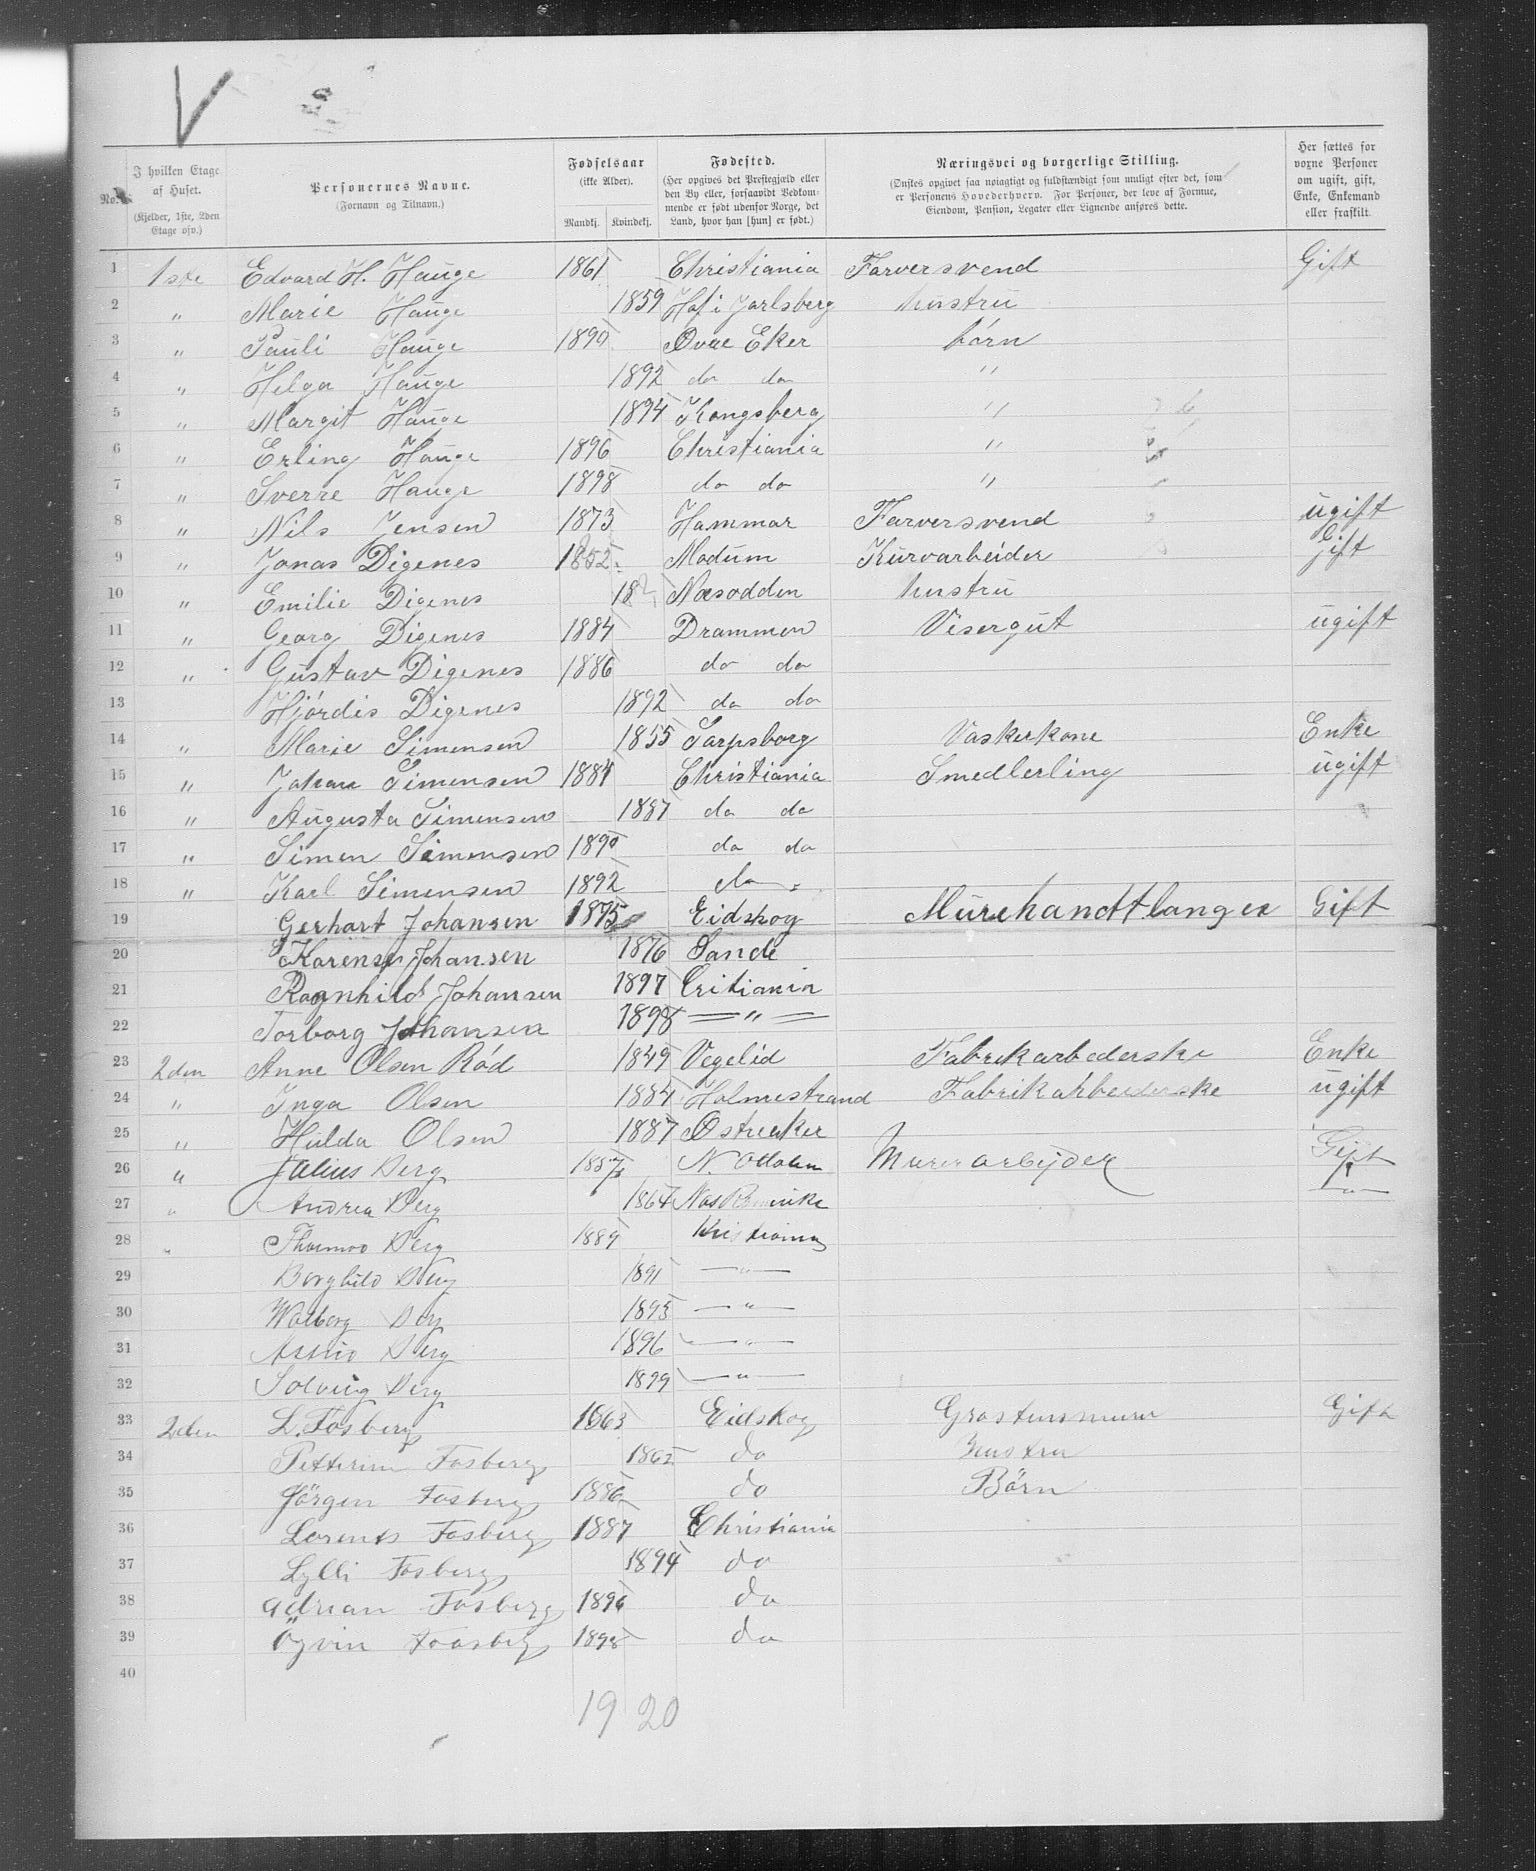 V
No.
I hvilken Etage af Huset. (Kjelder, 1ste, 2den Etage osv.)
Personernes Navne. (Fornavn og Tilnavn.)
Fødselsaar (ikke Alder). Mandkj. Kvindekj.
Fødested. (Her opgives det Prestegjæld eller den By eller, forsaavidt Vedkommende er født udenfor Norge, det Land, hvor han [hun] er født.)
Næringsvei og borgerlige Stilling. (Ønskes opgivet saa nøiagtigt og fuldstændigt som muligt efter det, som er Personens Hovederhverv. For Personer, der leve af Formue, Eiendom, Pension, Legater eller Lignende anføres dette.
Her sættes for voxne Personer om ugift, gift, Enke, Enkemand eller fraskilt.
1 1ste Edvard H. Hauge 1861 Christiania Farversvend Gift
2 " Marie Hauge 1859 Hof i Jarlsberg hustru
3 " Pauli Hauge 1890 Øvre Eker børn
4 " Helga Hauge 1892 do do "
5 " Margit Hauge 1894 Kongsberg "
6 " Erling Hauge 1896 Christiania "
7 " Sverre Hauge 1898 do do "
8 " Nils Jensen 1873 Hammar Farversvend ugift
9 " Jonas Digenes 1852 Modum Kurvarbeider Gift
10 " Emilie Digenes Næsodden hustru
11 " Georg Digenes 1884 Drammen Visergut ugift
12 " Gustav Digenes 1886 do do
13 Hjördis Digenes 1892 do do
14 " Marie Simensen 1855 Sarpsborg Vaskerkone Enke
15 " Johan Simensen 1884 Christiania Smedlerling ugift
16 " Augusta Simensen 1887 do do
17 " Simen Simensen 1890 do do
18 " Karl Simensen 1892 do "
19 Gerhart Johansen 1875 Eidskog Murehandtlanger Gift
20 Karense Johansen 1876 Sande
21 Ragnhild Johansen 1897 Critiania
22 Torborg Johansen 1898 — " —
23 2den Anne Olsen Rød 1849 Vegelid Fabrikarbederske Enke
24 " Inga Olsen 1884 Holmestrand Fabrikarbeiderske ugift
25 " Hulda Olsen 1887 Østreaker
26 " Julius Berg 1857 N. Murerarbejder Gift
27 " Andrea Berg 1864 — " —
28 " Berg 1889 Kristiania
29 Borghild Berg 1891 — " —
30 Walborg Berg 1893 — " —
31 Astrid Berg 1896 — " —
32 Solveig Berg 1899 — " —
33 2den L. Fosberg 1863 Eidskog Grastensmurer Gift
34 Petterine Fosberg 1862 do hustru
35 Jörgen Fosberg 1886 do Børn
36 Lorents Fosberg 1887 Christiania
37 Lylli Fosberg 1894 do
38 Adrian Fosberg 1896 do
39 Öyvin Foosberg 1898 do
40
19 20